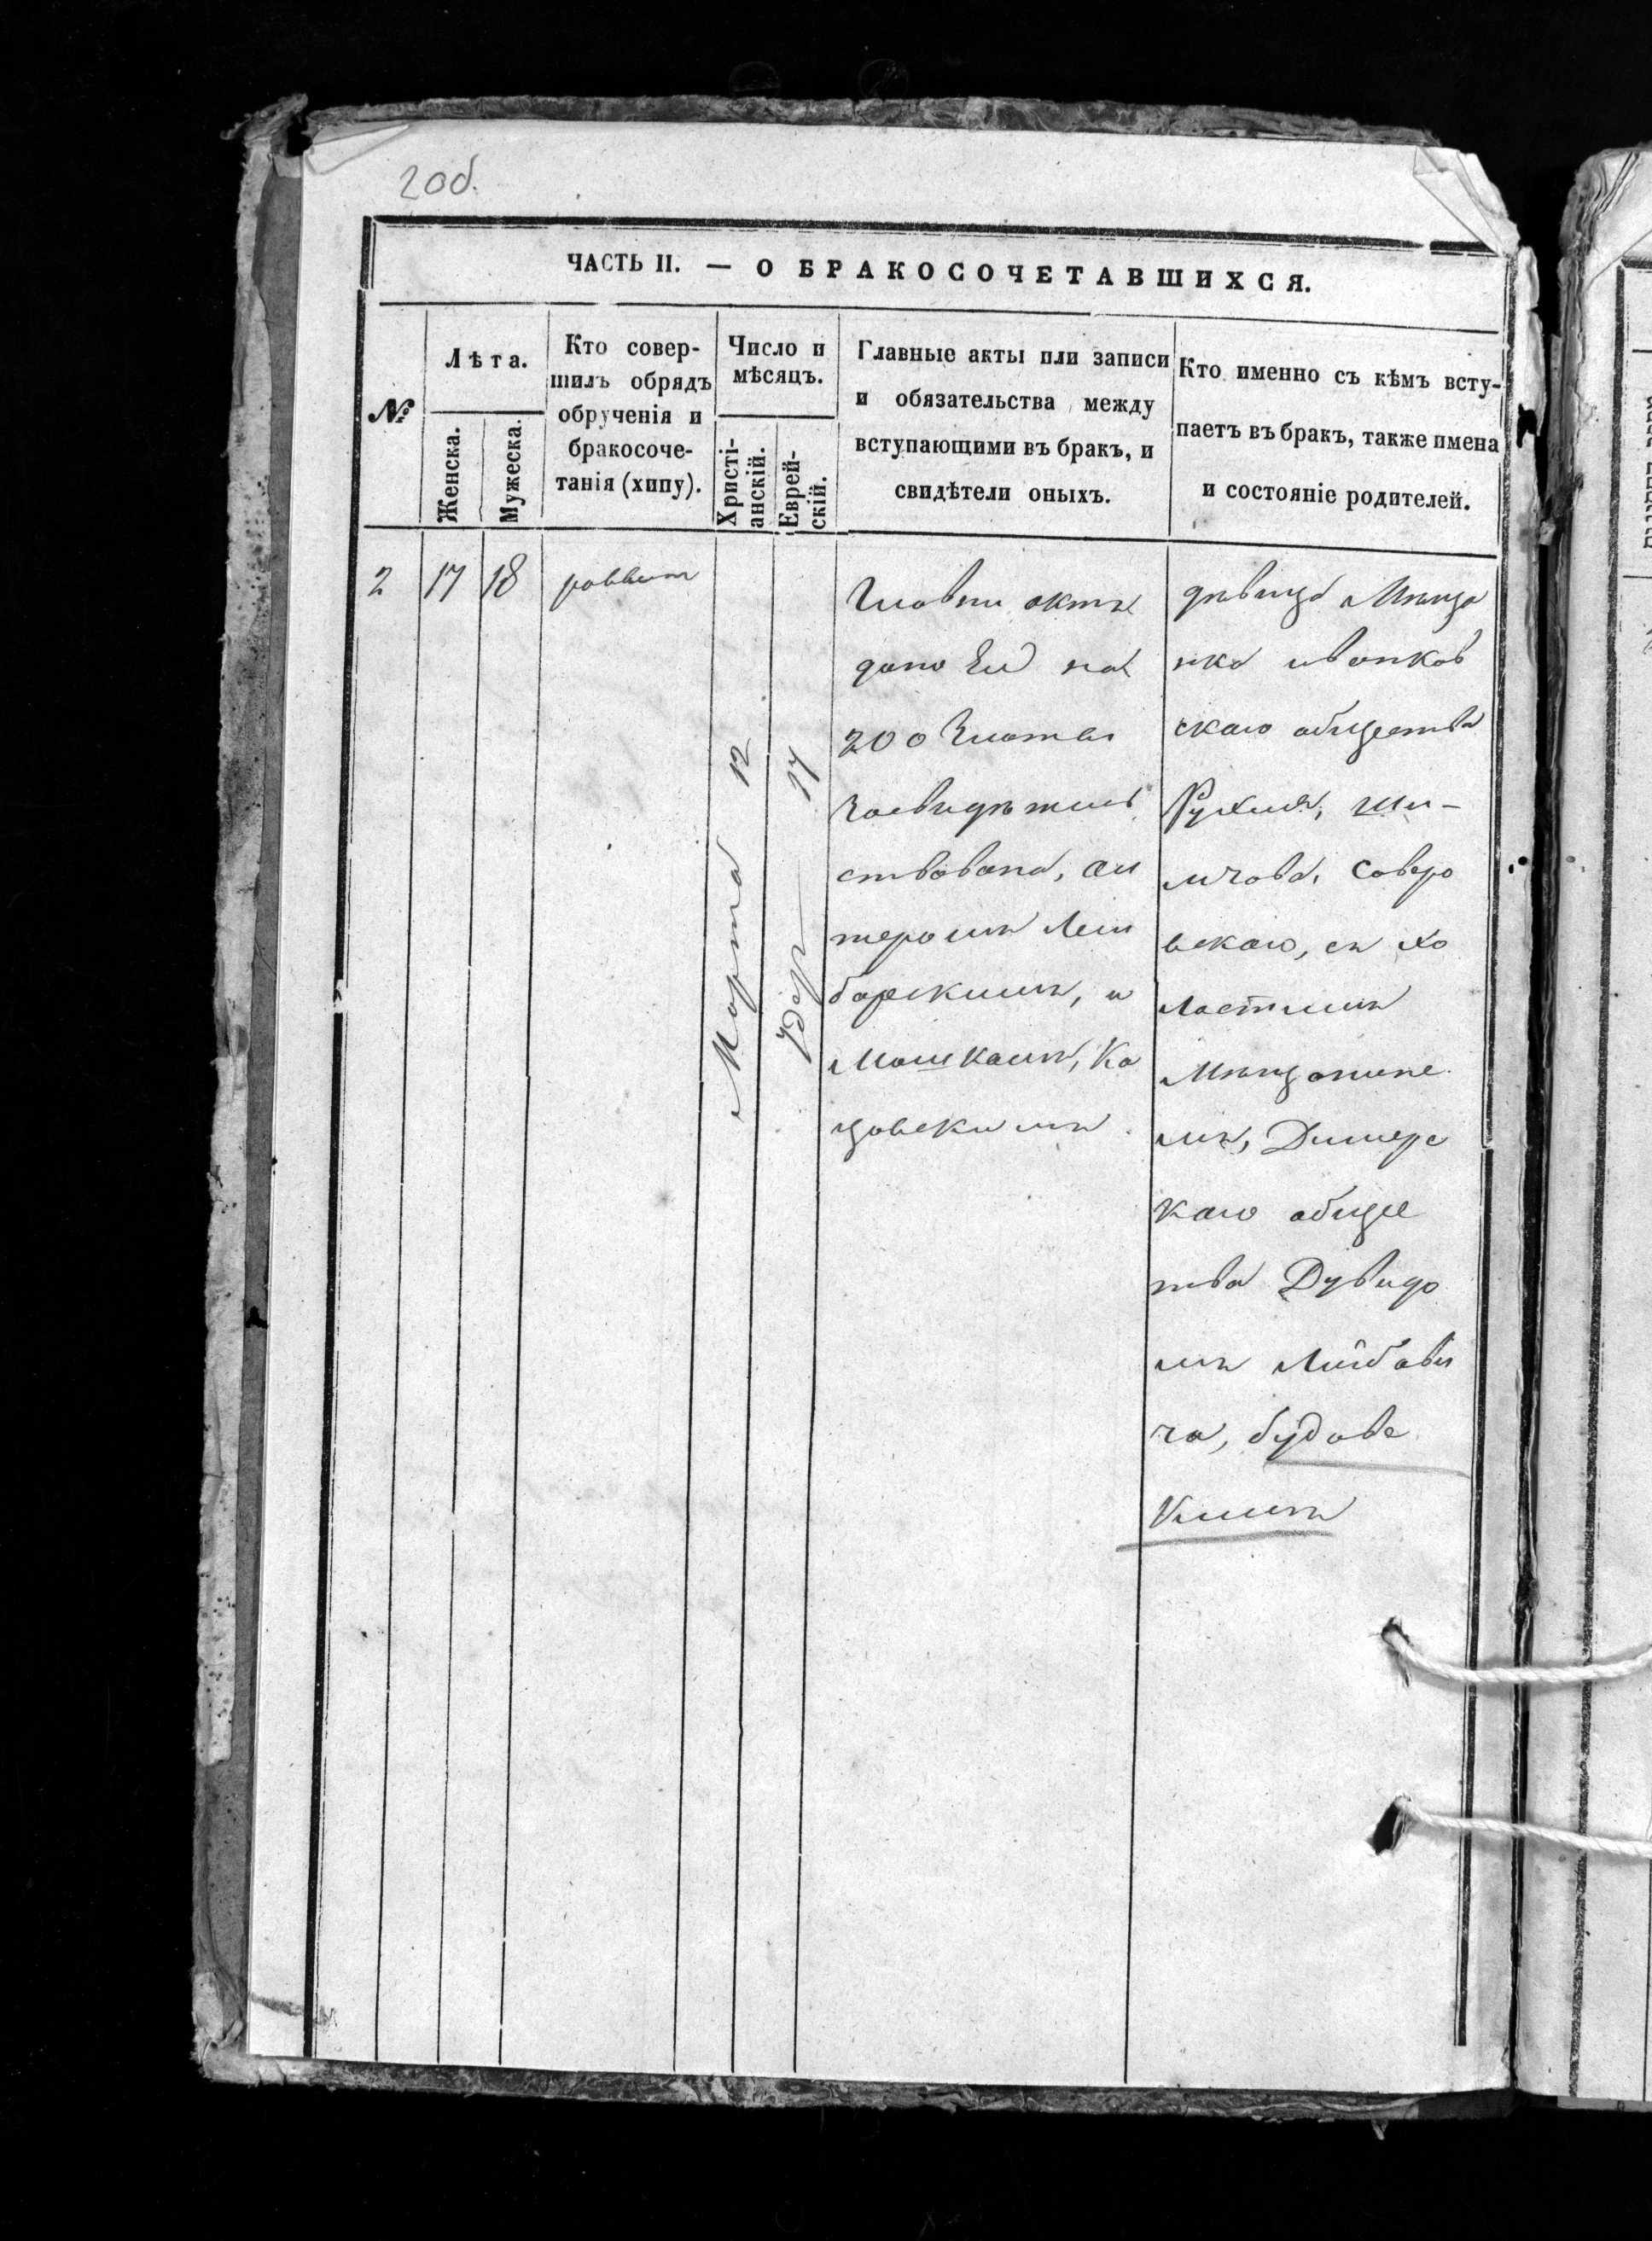 2об.
ЧАСТЬ II. — О БРАКОСОЧЕТАВШИХСЯ.
№
Лѣта.
Женска.
Мужеска.
Кто совер-
шилъ обрядъ
обрученія и
бракосоче-
танія (хипу).
Число и
мѣсяцъ.
Христі-
анскій.
Еврей-
скій.
Главные акты или записи
и обязательства между
вступающими въ бракъ, и
свидѣтели оныхъ.
Кто именно съ кѣмъ всту-
паетъ въ бракъ, также имена
и состояніе родителей.
2
17
18
раввин
Марта 12
Удер 17
Главни актъ
дано Ей на
200 Злоты
Засвидѣтель
ствована,
теромъ
барскимъ, и
Мошкамъ, Ка
цовскимъ
дѣвица Мѣща
нка иванков
скаго общества
Рухля, Шл-
мчова,
вскаго, съ хо
ластимъ
Мѣщанине
мъ, Димерс
каго общес
тва Дувидо
мъ Лейбови
ча, будовс
Кимъ